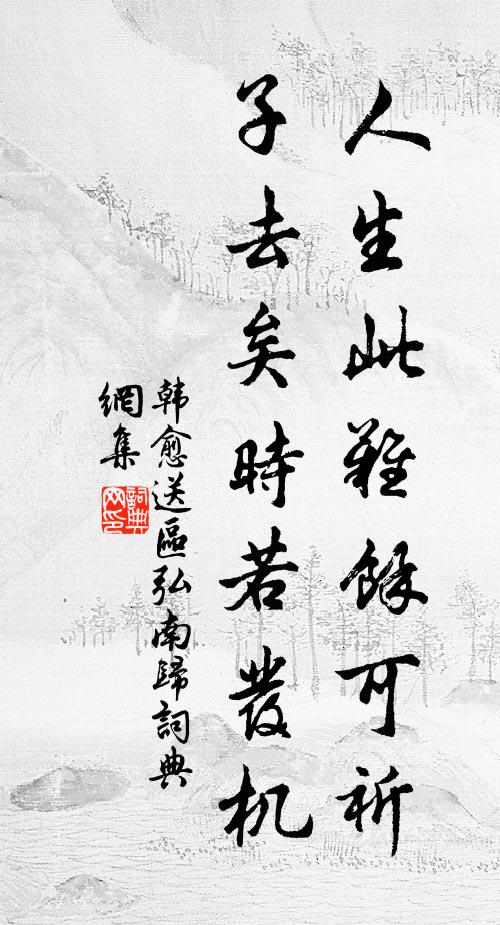 人生此難餘可祈
子去矣時若發机
韩愈送區弘南歸詞典
網集
詞典
网印